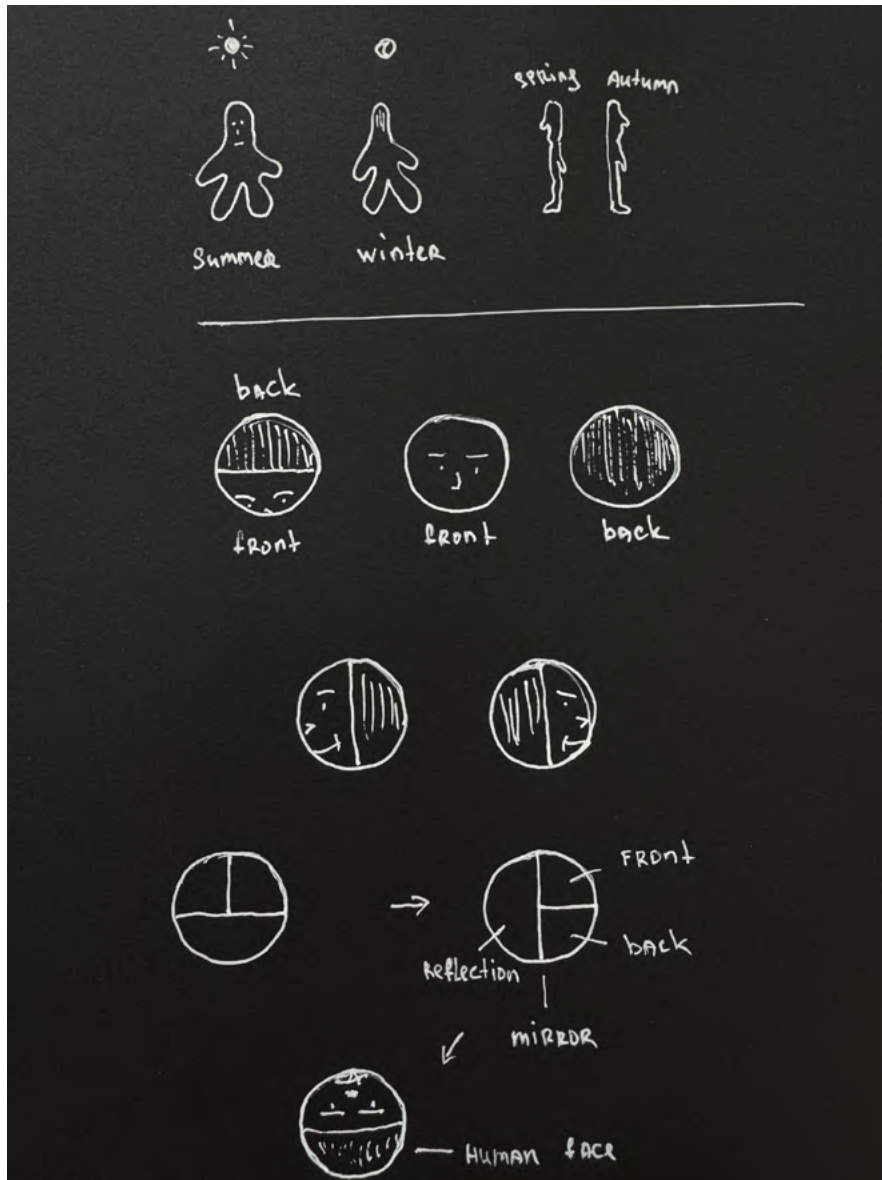 spring Autumn
Summer winter
back
front front back
FRont
back
Reflection
mirror
Human face